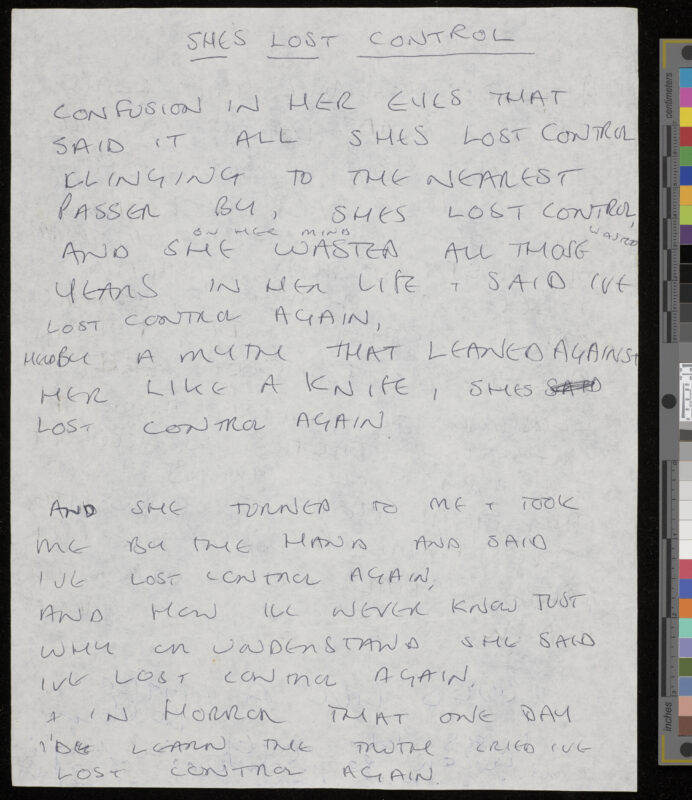 SHES LOST CONTROL
CONFUSION IN HER EYES THAT
SAID IT ALL SHES LOST CONTROL
CLINGING TO THE NEAREST
PASSER BY, SHES LOST CONTROL,
ON HER MIND WASTED
AND SHE WASTED ALL THOSE
YEARS IN HER LIFE + SAID IVE
LOST CONTROL AGAIN,
HELD BY A MYTH THAT LEANED AGAINST
HER LIKE A KNIFE, SHES SAID
LOST CONTROL AGAIN
AND SHE TURNED TO ME + TOOK
ME BY THE HAND AND SAID
I'VE LOST CONTROL AGAIN,
AND HOW ILL NEVER KNOW JUST
WHY OR UNDERSTAND SHE SAID
IVE LOST CONTROL AGAIN,
+ IN HORROR THAT ONE DAY
I'D LEARN THE TRUTH CRIED IVE
LOST CONTROL AGAIN.
centimeters
inches